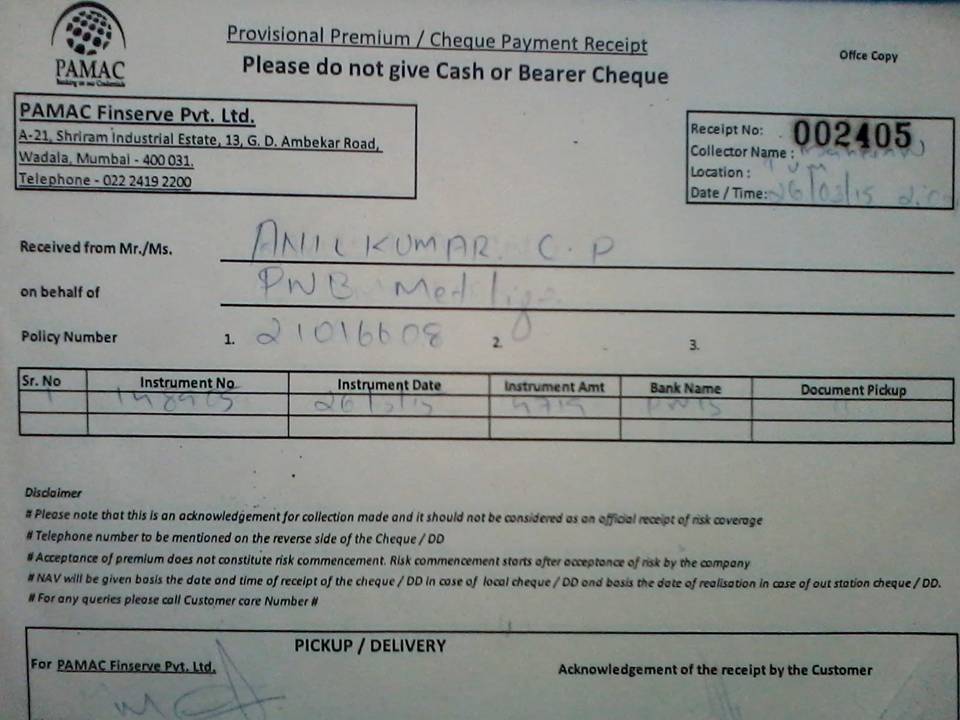 PAMAC
Provisional Premium / Cheque Payment Receipt
Office Copy
Please do not give Cash or Bearer Cheque
PAMAC Finserve Pvt. Ltd.
A-21, Shriram Industrial Estate, 13, G. D. Ambekar Road,
Wadala, Mumbai - 400 031.
Telephone - 022 2419 2200
Receipt No: 002405
Collector Name :
Location :
Date / Time: 26/03/15
Received from Mr./Ms. ANIL KUMAR C. P
on behalf of PNB Met life
Policy Number 1. 21016608 2. 3.
Sr. No Instrument No Instrument Date Instrument Amt Bank Name Document Pickup
1 26/3/15 PNB
Disclaimer
# Please note that this is an acknowledgement for collection made and it should not be considered as an official receipt of risk coverage
# Telephone number to be mentioned on the reverse side of the Cheque / DD
# Acceptance of premium does not constitute risk commencement. Risk commencement starts after acceptance of risk by the company
# NAV will be given basis the date and time of receipt of the cheque / DD in case of local cheque / DD and basis the date of realisation in case of out station cheque / DD.
# For any queries please call Customer care Number #
PICKUP / DELIVERY
For PAMAC Finserve Pvt. Ltd.
Acknowledgement of the receipt by the Customer